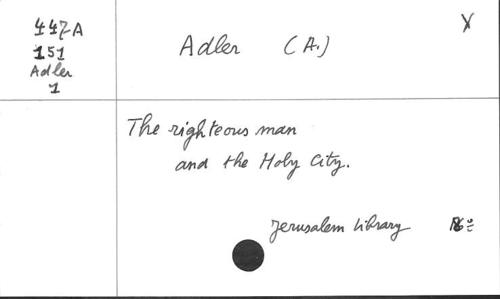 447A
151
Adler
1
Adler (A.)
X
The righteous man
and the Holy City.
Jerusalem Library